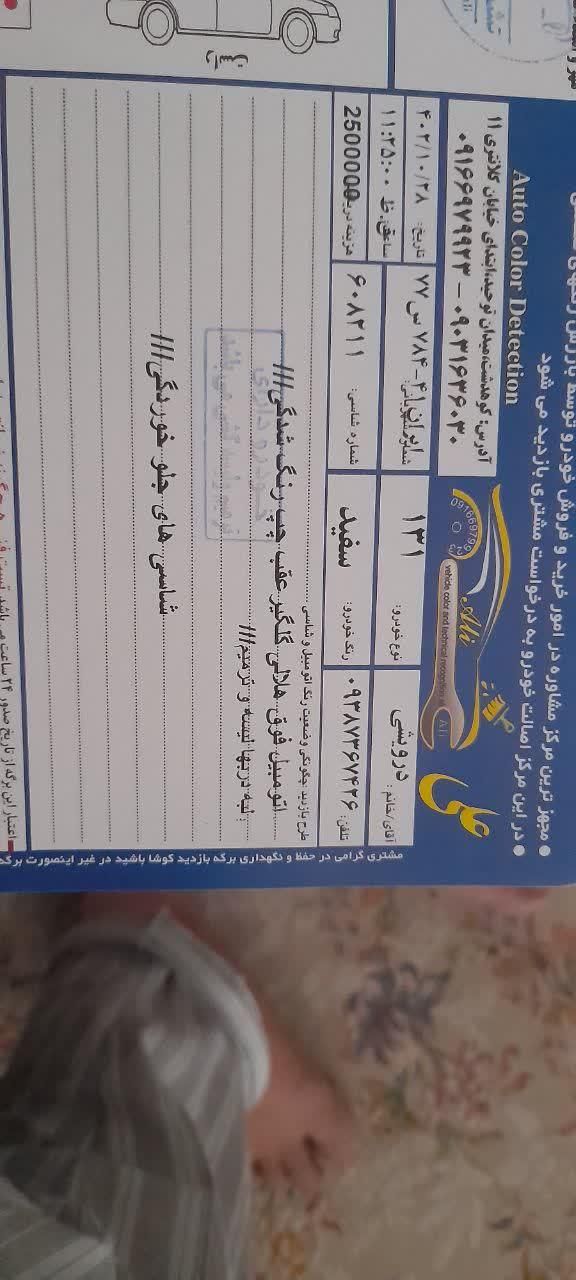 • مجهز ترین مرکز مشاوره در امور خرید و فروش خودرو توسط
• در این مرکز اصالت خودرو به درخواست مشتری بازدید می شود
Auto Color Detection
آدرس: کوهدشت،میدان توحید،ابتدای خیابان کلانتری ۱۱
۰۹۱۶۶۹۷۹۹۲۳ – ۰۹۰۳۱۶۳۶۰۳۰
علی
Ali
vehicle color and technical recognition
Ali
آقای/خانم : درویشی
نوع خودرو: ۱۳۱
ایران ۴۱-۷۸۴ س ۷۷
تاریخ: ۴۰۲/۱۰/۲۸
ساعت: ۱۱:۲۵:۰۰ ق.ظ
تلفن: ۰۹۳۸۷۳۶۷۴۲۶
رنگ خودرو: سفید
شماره شاسی: ۶۰۸۲۱۱
هزینه 2500000
طرح بازدید چگونگی وضعیت رنگ اتومبیل و شاسی
اتومبیل فوق هلالی گلگیر عقب چپ رنگ شدگی///
لبه دربها لیسه و ترمیم///
خودرو دارای
شاسی های جلو خوردگی///
مشتری گرامی در حفظ و نگهداری برگه بازدید کوشا باشید در غیر اینصورت برگه
اعتبار این برگه از تاریخ صدور ۲۴ ساعت می باشد